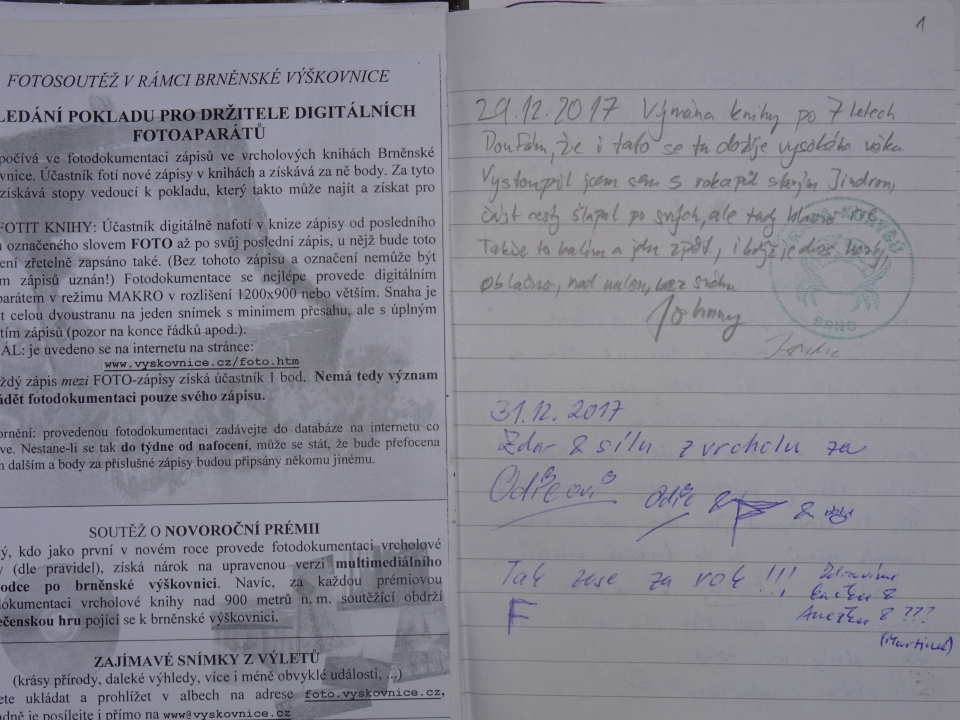 FOTOSOUTĚŽ V RÁMCI BRNĚNSKÉ VÝŠKOVNICE
LEDÁNÍ POKLADU PRO DRŽITELE DIGITÁLNÍCH
FOTOAPARÁTŮ
počívá ve fotodokumentaci zápisů ve vrcholových knihách Brněnské
vnice. Účastník fotí nové zápisy v knihách a získává za ně body. Za tyto
získává stopy vedoucí k pokladu, který takto může najít a získat pro
FOTIT KNIHU: Účastník digitálně nafotí v knize zápisy od posledního
označeného slovem FOTO až po svůj poslední zápis, u nějž bude toto
ení zřetelně zapsáno také. (Bez tohoto zápisu a označení nemůže být
m zápisů uznán!) Fotodokumentace se nejlépe provede digitálním
parátem v režimu MAKRO v rozlišení 1200x900 nebo větším. Snaha je
t celou dvoustranu na jeden snímek s minimem přesahu, ale s úplným
tím zápisů (pozor na konce řádků apod.).
ÁL: je uvedeno se na internetu na stránce:
www.vyskovnice.cz/foto.htm
ždý zápis mezi FOTO-zápisy získá účastník 1 bod. Nemá tedy význam
ádět fotodokumentaci pouze svého zápisu.
ornění: provedenou fotodokumentaci zadávejte do databáze na internetu co
ve. Nestane-li se tak do týdne od nafocení, může se stát, že bude přefocena
m dalším a body za příslušné zápisy budou připsány někomu jinému.
SOUTĚŽ O NOVOROČNÍ PRÉMII
ý, kdo jako první v novém roce provede fotodokumentaci vrcholové
y (dle pravidel), získá nárok na upravenou verzi multimediálního
odce po brněnské výškovnici. Navíc, za každou prémiovou
dokumentaci vrcholové knihy nad 900 metrů n. m. soutěžící obdrží
ečenskou hru pojící se k brněnské výškovnici.
ZAJÍMAVÉ SNÍMKY Z VÝLETŮ
(krásy přírody, daleké výhledy, více i méně obvyklé události, ...)
ete ukládat a prohlížet v albech na adrese foto.vyskovnice.cz,
adně je posílejte i přímo na www@vyskovnice.cz
1
29.12.2017 Výměna knihy po 7 letech
Doufám, že i tato se tu dožije vysokého věku.
Vystoupil jsem sem s rokapůl starým Jindrou,
část cesty šlapal po svých, ale tady
Takže to balím a jdu zpět, i když je dnes hezky,
oblačno, nad nulou, bez sněhu
Johnny
BRNO
31.12.2017
Zdar & sílu z vrcholu za
&
Tak zase za rok !!!
Zdravíme
&
Anežka & ???
(Martínek)
F